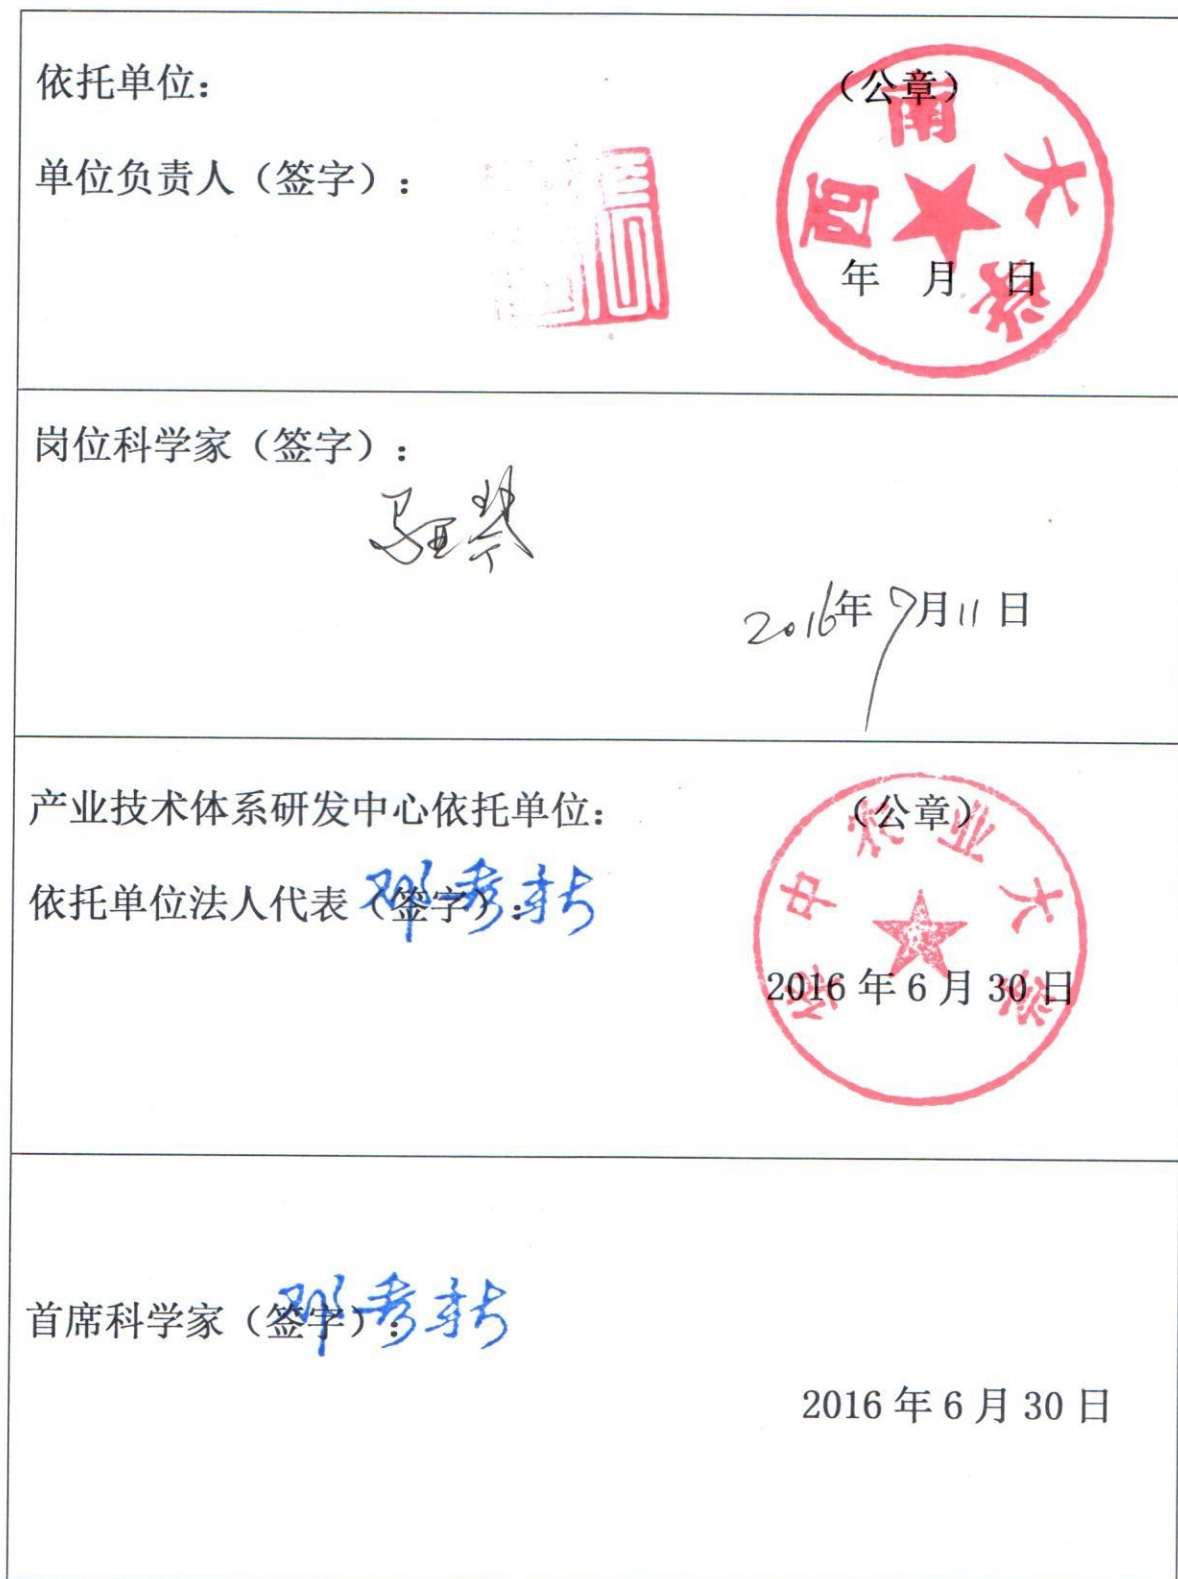 依托单位：
（公章）
西南大学
单位负责人（签字）：
年 月 日
岗位科学家（签字）：
2016年 7月11 日
产业技术体系研发中心依托单位：
（公章）
华中农业大学
依托单位法人代表（签字）：
邓秀新
2016 年 6 月 30 日
首席科学家（签字）：
邓秀新
2016 年 6 月 30 日